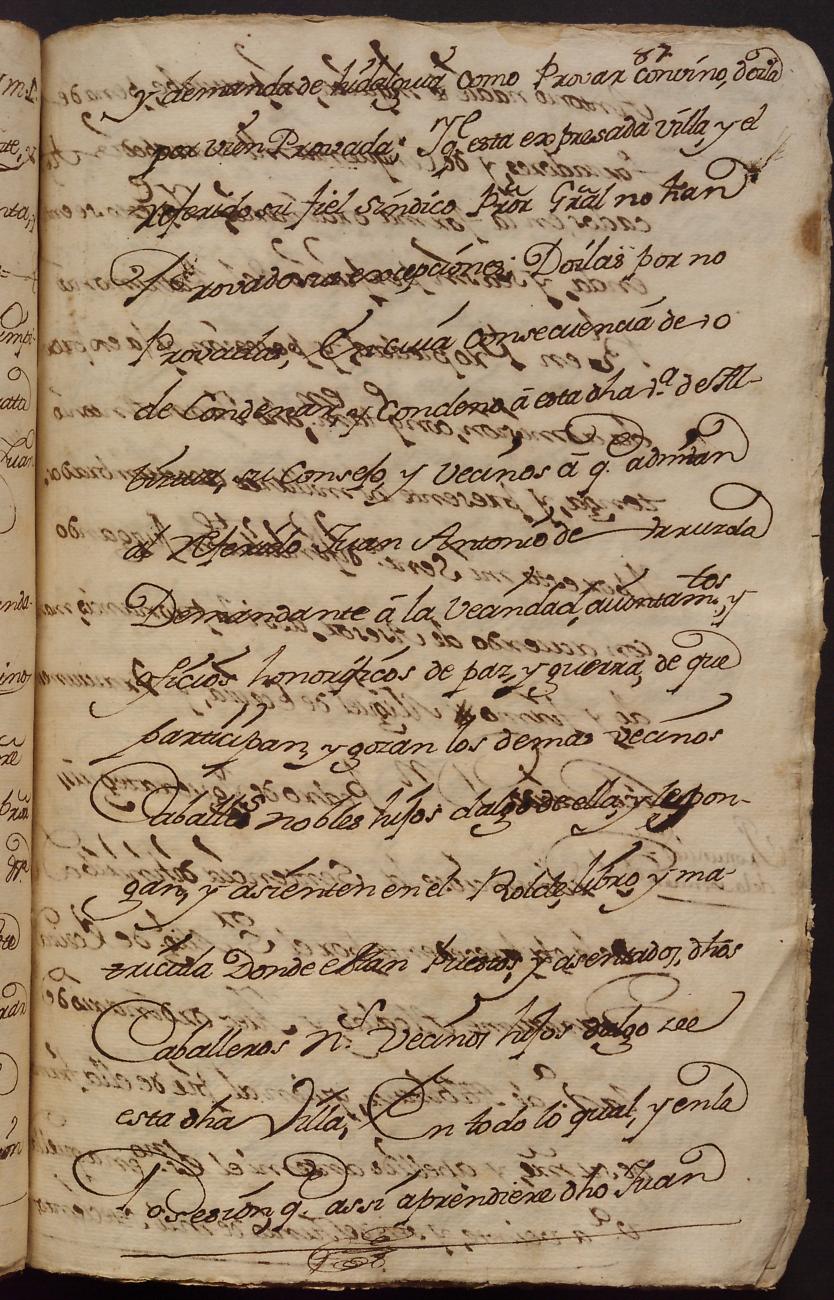 87
y demanda de hidalguia como Provar convino, doila
por vien Provada; Y q.e esta expresada villa, y el
referido su fiel sindico Prõr Grãl no han
Provado sus excepciones; Doilas por no
Provadas, En cuia Consecuencia devo
de Condenar, y Condeno, â esta dha v.ª de
su Consejo y Vecinos â q. admitan
al referido Juan Antonio de
Demandante â la Veandad, aiuntam.tos y
oficios honorificos de paz, y guerra, de que
participan, y gozan los demas vecinos
Cavalleros nobles hijos dalgo de ella, y le pon-
gan, y asienten en el Rolde, libro y ma-
tricula Donde estan Puestos, y asentados, dhos
Caballeros N.s Vecinos hijos dalgo
esta dha Villa, En todo lo qual, y en la
Posesion q. assi aprendiere dho Juan